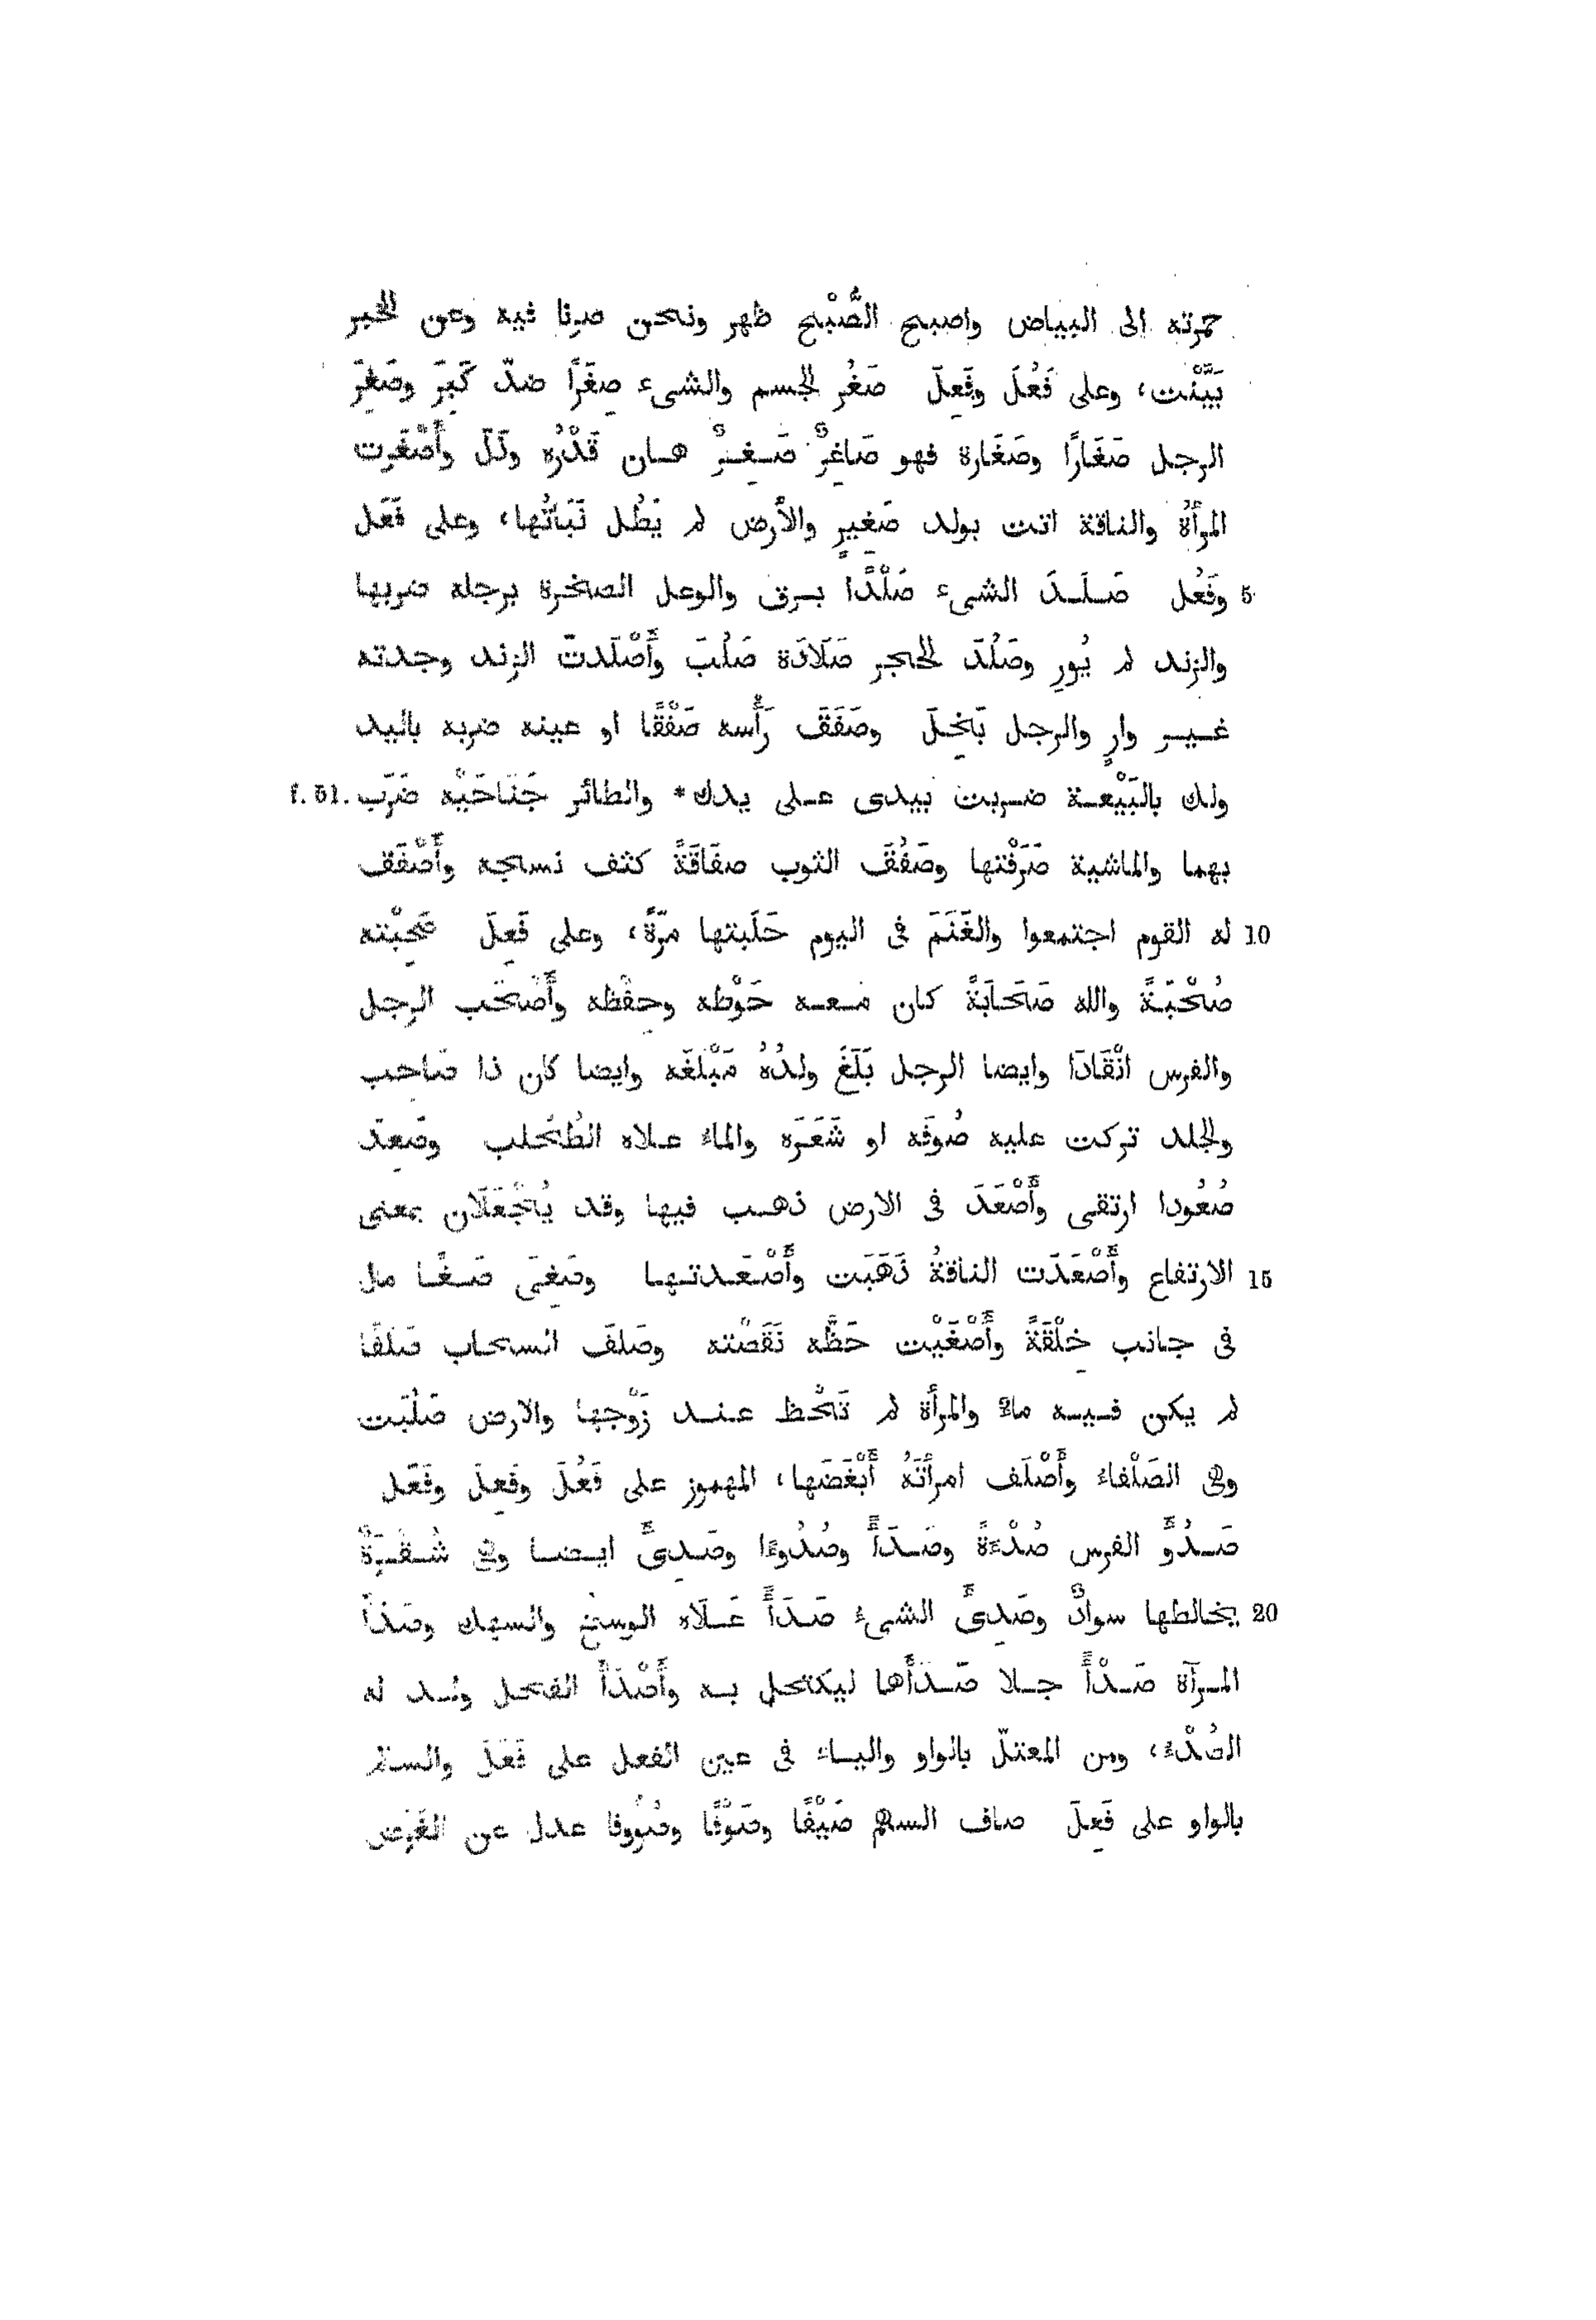 حمرته الى البياض واصبح الصُّبْح ظهر ونحن صرنا فيه وعن الخبر
بَيَّنْت، وعلى فَعُلَ وفَعِلَ صَغُر الجسم والشىء صِغَرًا ضدّ كَبِرَ وصَغِرَ
الرجل صَغَارًا وصَغَارة فهو صَاغِرٌ صَغِيرٌ هان قَدْرُه وذَلّ وأَصْغَرت
المرأةُ والناقة اتت بولد صَغيرٍ والأرض لم يَطُل نَبَاتُها، وعلى فَعَل
5 وفَعُل صَلَدَ الشىء صَلْدًا برق والوعل الصخرة برجله ضربها
والزند لم يُورِ وصَلُدَ الحجر صَلَادَة صَلُبَ وأَصْلَدتّ الزند وجدته
غير وارٍ والرجل بَخِلَ وصَفَقَ رَأْسه صَفْقًا او عينه ضربه باليد
ولك بالبَيْعة ضربت بيدى على يدك* والطائر جَنَاحَيْه ضَرَب f. 51.
بهما والماشية صَرَفْتها وصَفُقَ الثوب صفَاقَةً كثف نسجه وأَصْفَق
10 له القوم اجتمعوا والغَنَمَ فى اليوم حَلَبتها مرّةً، وعلى فَعِلَ صَحِبْته
صُحْبَةً والله صَحَابَةً كان معه حَوْطه وحِفْظه وأَصْحَب الرجل
والفرس انْقَادَا وايضا الرجل بَلَغَ ولدُهُ مَبْلغَه وايضا كان ذا صَاحِب
والجلد تركت عليه صُوفَه او شَعَرَه والماءُ علاه الطُحْلب وصَعِدَ
صُعُودا ارتقى وأَصْعَدَ فى الارض ذهب فيها وقد يُجْعَلَان بمعنى
15 الارتفاع وأَصْعَدَت الناقةُ ذَهَبَت وأَصْعَدتها وصَغِىَ صَغًا مال
فى جانب خِلْقَةً وأَصْغَيْت حَظَّه نَقَصْته وصَلفَ السحاب صَلَفًا
لم يكن فيه ماء والمرأة لم تَحْظ عند زَوْجها والارض صَلُبَت
وهى الصَلْفاءُ وأَصْلَف امرأتَهُ أَبْغَضَها، المهموز على فَعُلَ وفَعِلَ وفَعَل
صَدُؤَ الفرس صُدْءَةً وصَدَأً وصُدُوءًا وصَدِئَ ايضا وهى شُقْرَةٌ
20 يخالطها سوادٌ وصَدِئَ الشىءُ صَدَأً عَلَاه الوسخ والسهك وصَدَأ
المرآة صَدْأً جلا صَدَأَها ليكتحل به وأَصْدَأَ الفحل ولد له
الصُدْءُ، ومن المعتلّ بالواو والياء فى عين الفعل على فَعَلَ والسالم
بالواو على فَعِلَ صاف السهم صَيْفًا وصَوْفًا وصُوُوفا عدل عن الغَرَض